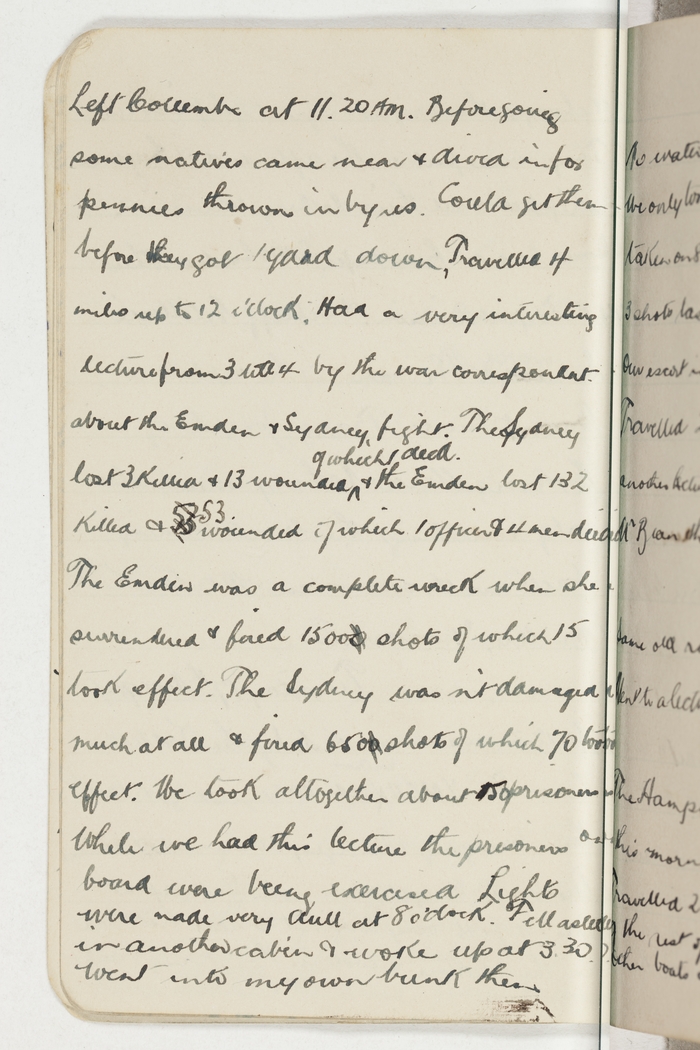 Left Collembo at 11.20 AM. Before going
some natives came near & dived in for
pennies thrown in by us. Could get them
before they got 1 yard down, Travelled 4
miles up to 12 o'clock. Had a very interesting
lecture from 3 till 4 by the war correspondent.
about the Emden & Sydney fight. The Sydney
of which 1 died.
lost 3 Killed & 13 wounded, & the Emden lost 132
Killed & 53 wounded of which 1 officer & 4 men died
The Emden was a complete wreck when she
surrendered & fired 1500 shots of which 15
took effect. The Sydney was n't damaged
much at all & fired 650 shots of which 70 took
effect. We took altogether about 150 prisoners
While we had this lecture the prisoners on
board were being exercised Lights
were made very dull at 8 o'clock. Fell asleep
in another cabin & woke up at 3.30.
Went into my own bunk then
No water
We only
taken on
3 shots
Our escort
Travelled
another
Mr Bean
Same old
Went to a
The Hamp
this morn
Travelled 2
the rest of
other boats